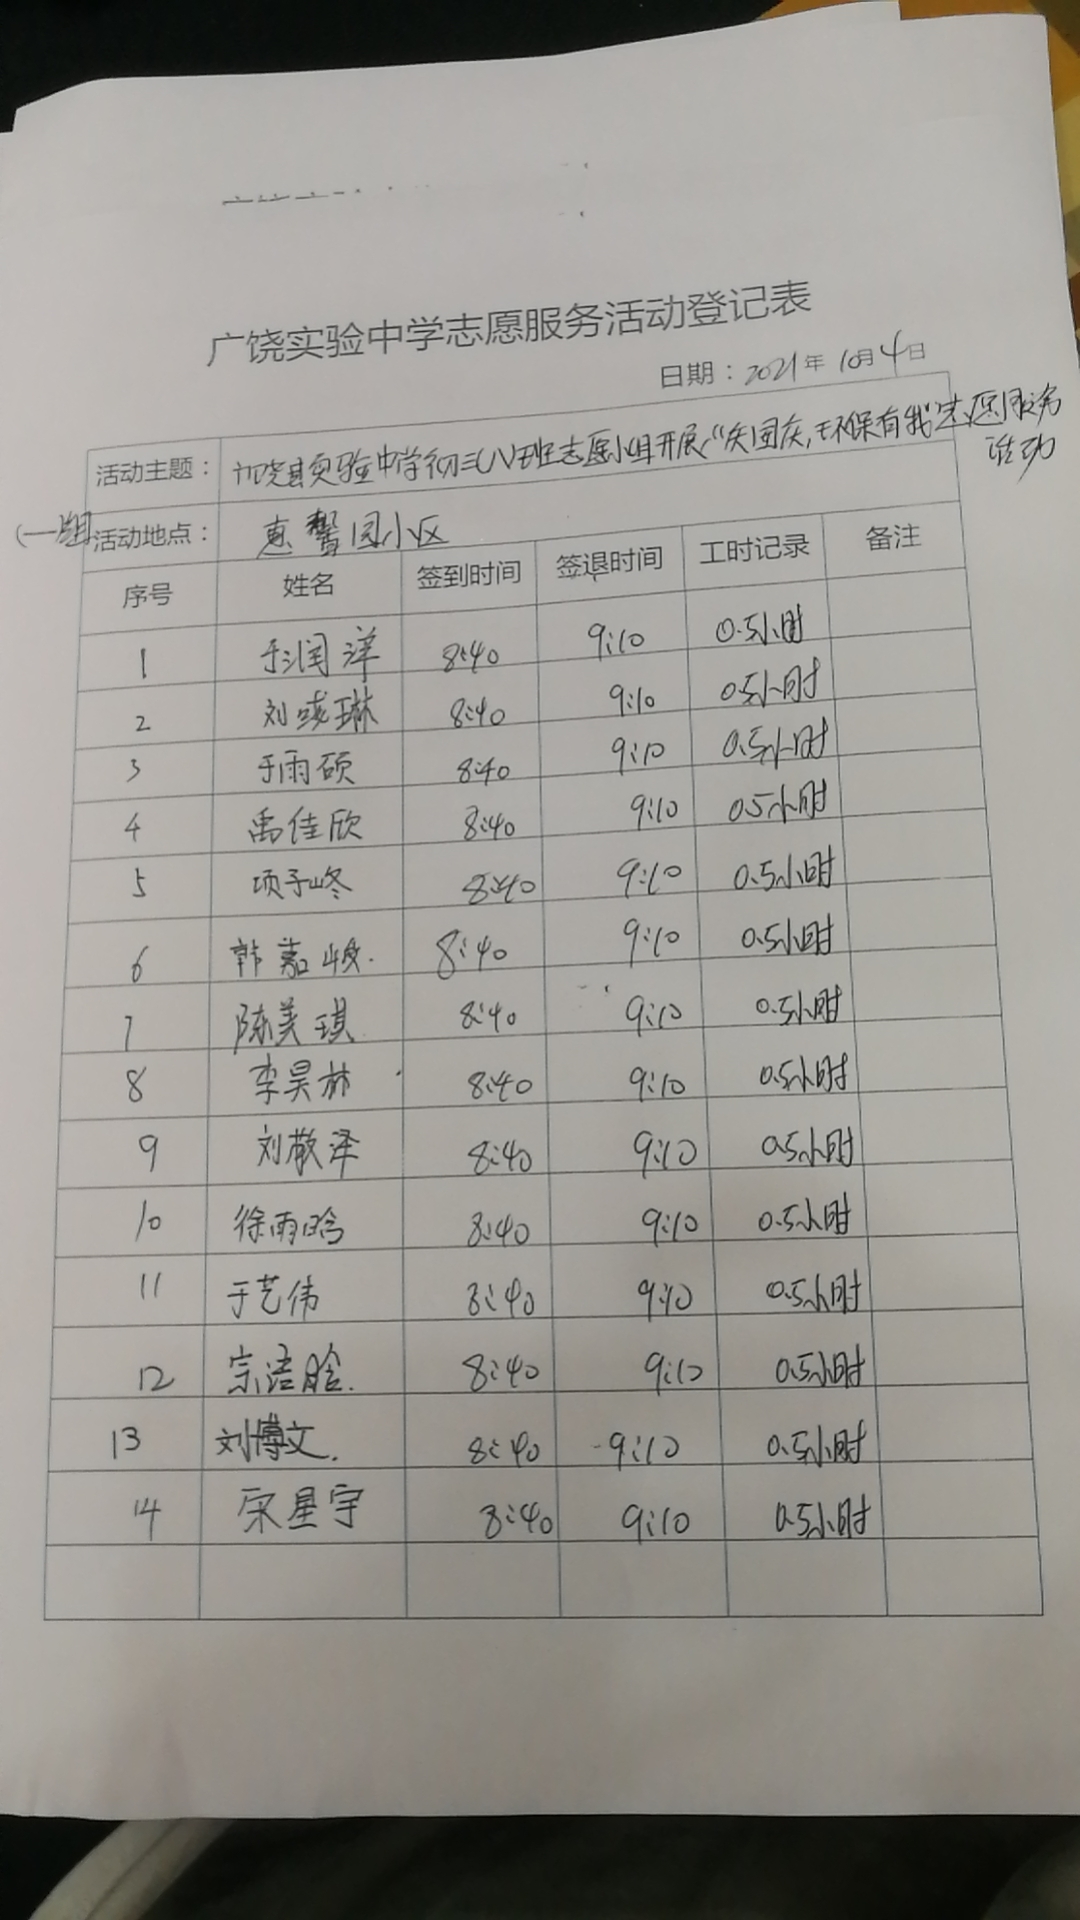 广饶实验中学志愿服务活动登记表
日期：2021年10月4日
活动主题： 广饶县实验中学初三(1)班志愿小组开展"庆国庆,环保有我"志愿服务
活动
(一组) 活动地点： 惠馨园小区
序号 姓名 签到时间 签退时间 工时记录 备注
1 于润洋 8:40 9:10 0.5小时
2 刘彧琳 8:40 9:10 0.5小时
3 于雨硕 8:40 9:10 0.5小时
4 禹佳欣 8:40 9:10 0.5小时
5 项子峰 8:40 9:10 0.5小时
6 韩嘉峻 8:40 9:10 0.5小时
7 陈美琪 8:40 9:10 0.5小时
8 李昊林 8:40 9:10 0.5小时
9 刘敬泽 8:40 9:10 0.5小时
10 徐雨晗 8:40 9:10 0.5小时
11 于艺伟 8:40 9:10 0.5小时
12 宗语晗 8:40 9:10 0.5小时
13 刘博文 8:40 9:10 0.5小时
14 宋星宇 8:40 9:10 0.5小时